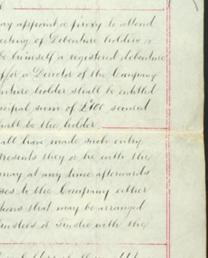 may appoint a proxy to attend
meeting of Debenture holders
be himself a registered debenture
for a Director of the Company
debenture holder shall be entitled
principal sum of £100 secured
shall be the holder
shall have made such entry
presents they or he with the
may at any time afterwards
to the Company either
terms that may be arranged
Trustees or Trustee with the